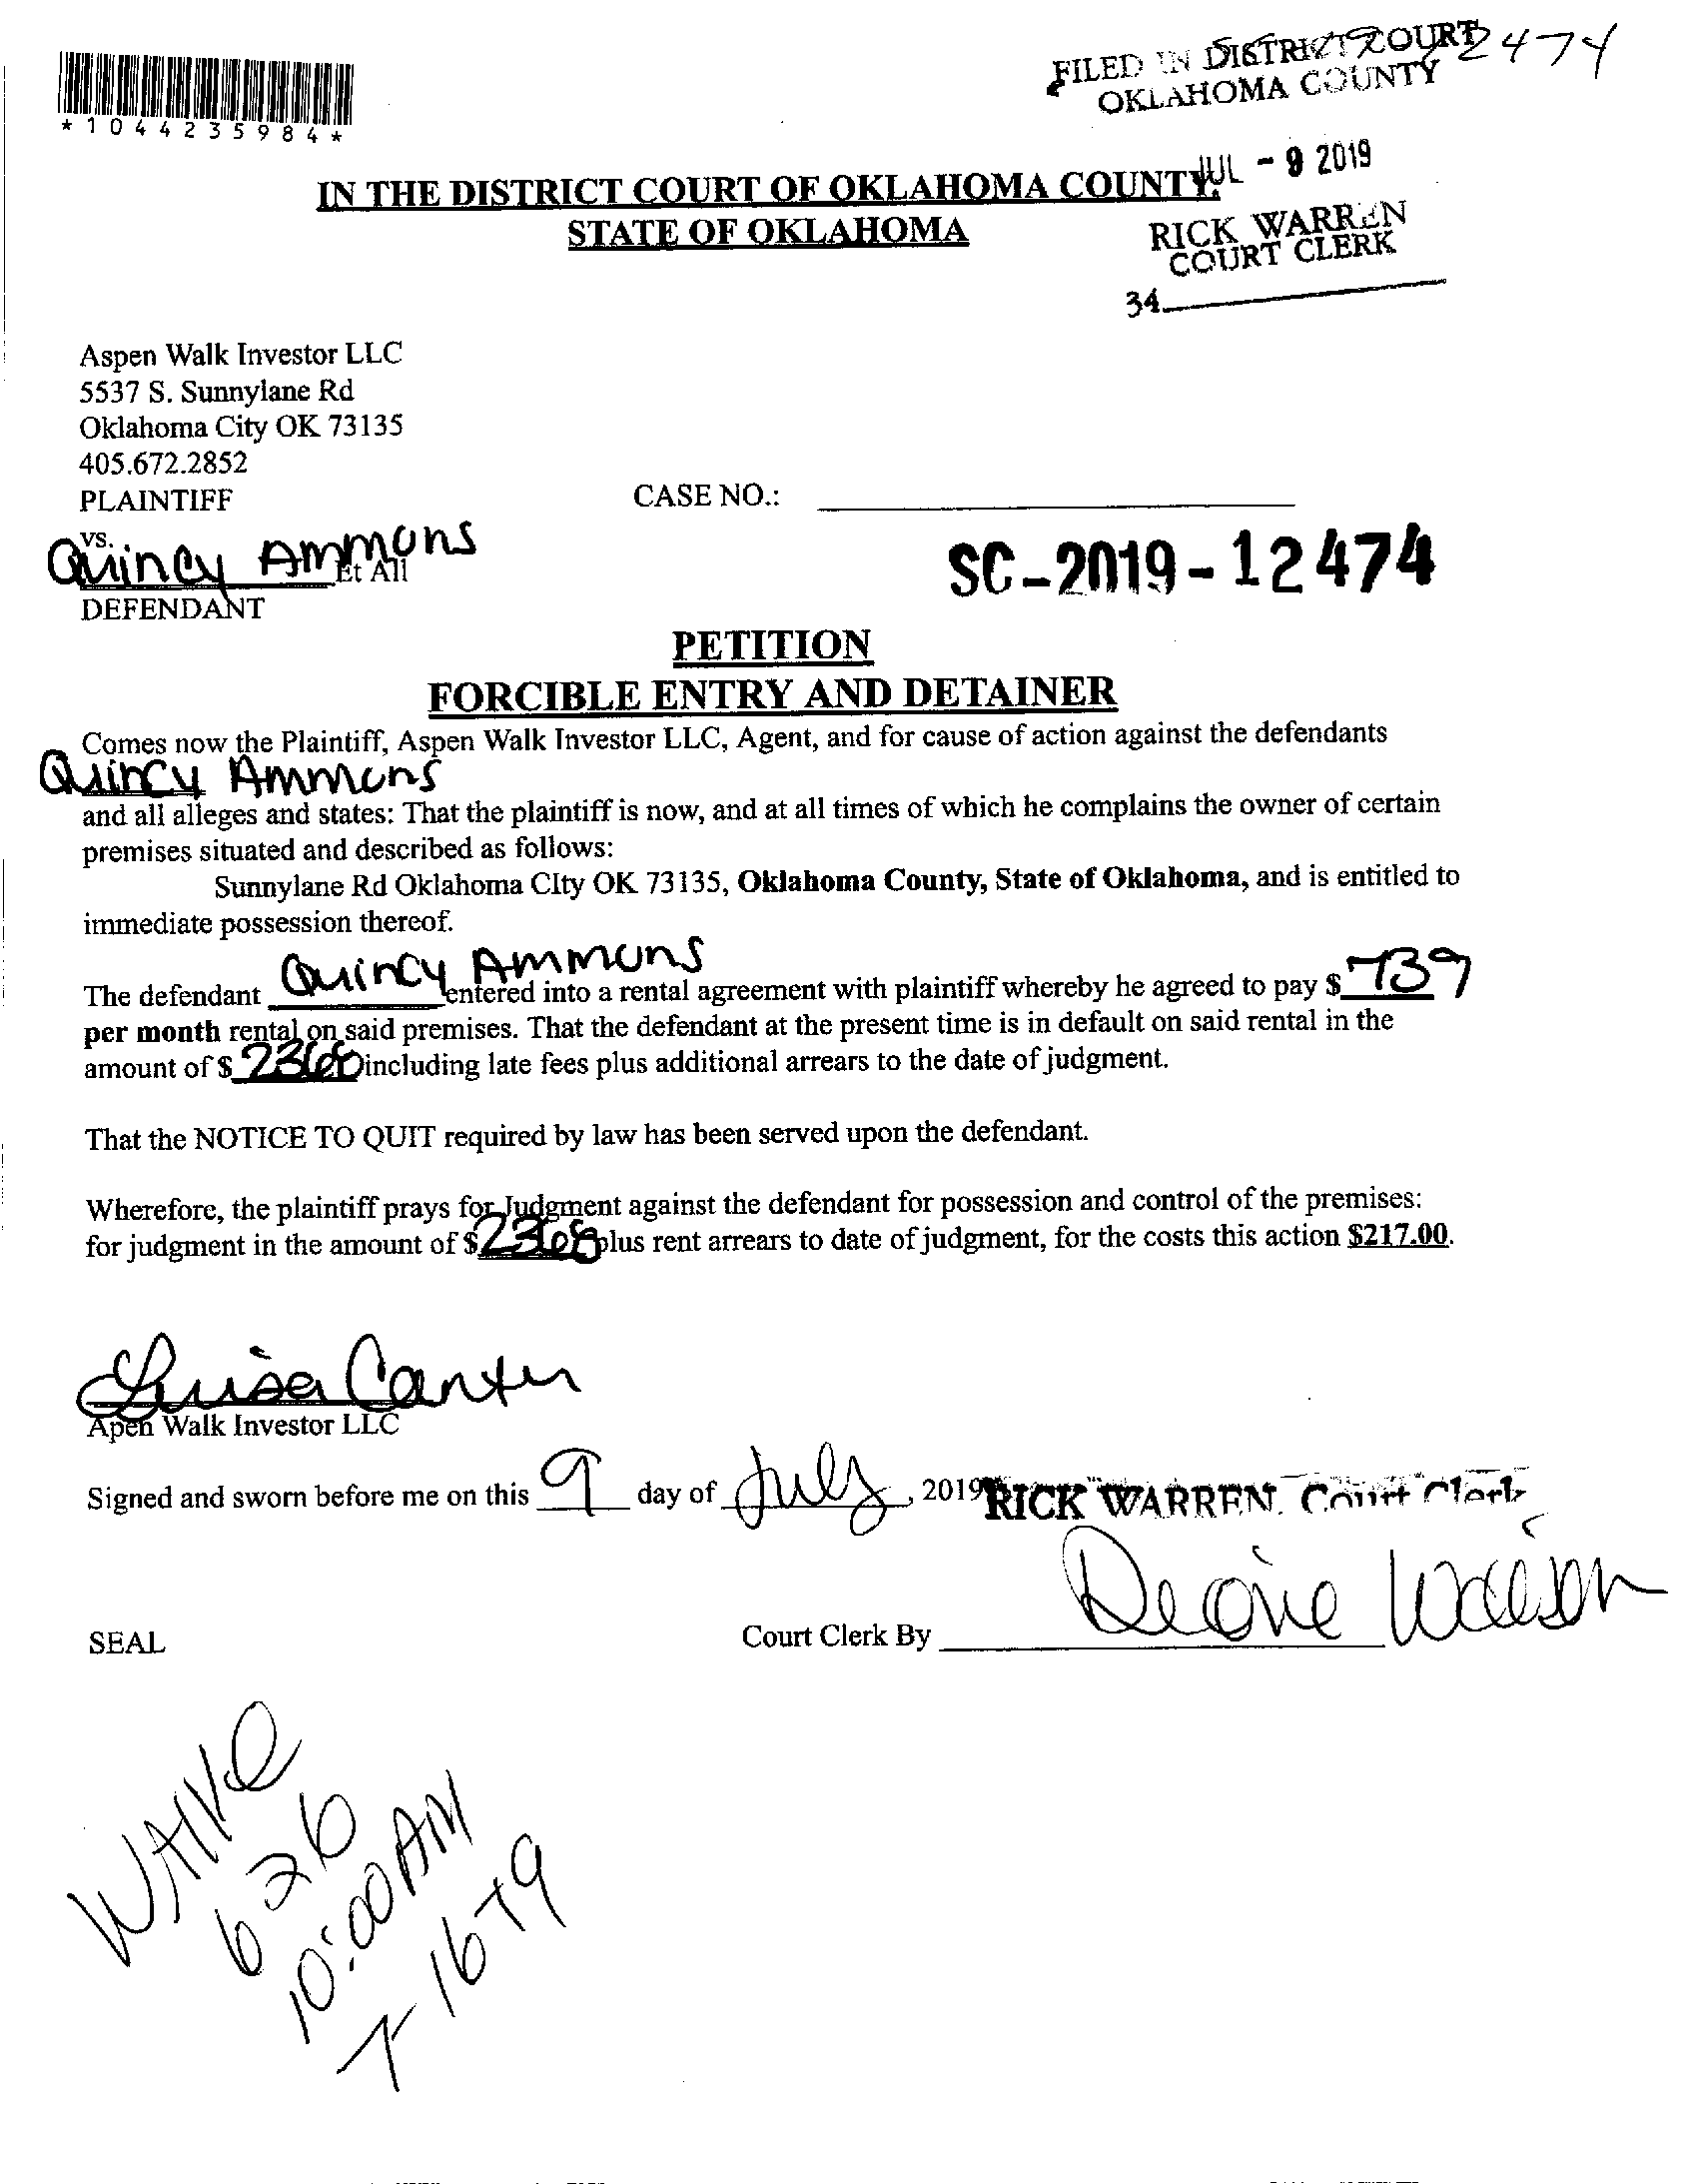 FILED IN DISTRICT COURT
OKLAHOMA COUNTY
12474
*1044235984*
JUL - 9 2019
IN THE DISTRICT COURT OF OKLAHOMA COUNTY,
STATE OF OKLAHOMA
RICK WARREN
COURT CLERK
34
Aspen Walk Investor LLC
5537 S. Sunnylane Rd
Oklahoma City OK 73135
405.672.2852
PLAINTIFF
CASE NO.:
vs.
Quincy Ammons Et All
SC-2019-12474
DEFENDANT
PETITION
FORCIBLE ENTRY AND DETAINER
Comes now the Plaintiff, Aspen Walk Investor LLC, Agent, and for cause of action against the defendants
Quincy Ammons
and all alleges and states: That the plaintiff is now, and at all times of which he complains the owner of certain
premises situated and described as follows:
Sunnylane Rd Oklahoma CIty OK 73135, Oklahoma County, State of Oklahoma, and is entitled to
immediate possession thereof.
The defendant Quincy Ammons entered into a rental agreement with plaintiff whereby he agreed to pay $ 739
per month rental on said premises. That the defendant at the present time is in default on said rental in the
amount of $ including late fees plus additional arrears to the date of judgment.
That the NOTICE TO QUIT required by law has been served upon the defendant.
Wherefore, the plaintiff prays for Judgment against the defendant for possession and control of the premises:
for judgment in the amount of $ plus rent arrears to date of judgment, for the costs this action $217.00.
Luisa Canter
Apen Walk Investor LLC
Signed and sworn before me on this 9 day of July, 2019 RICK WARREN, Court Clerk
SEAL
Court Clerk By
WAIVE
626
10:00 AM
7-16-19